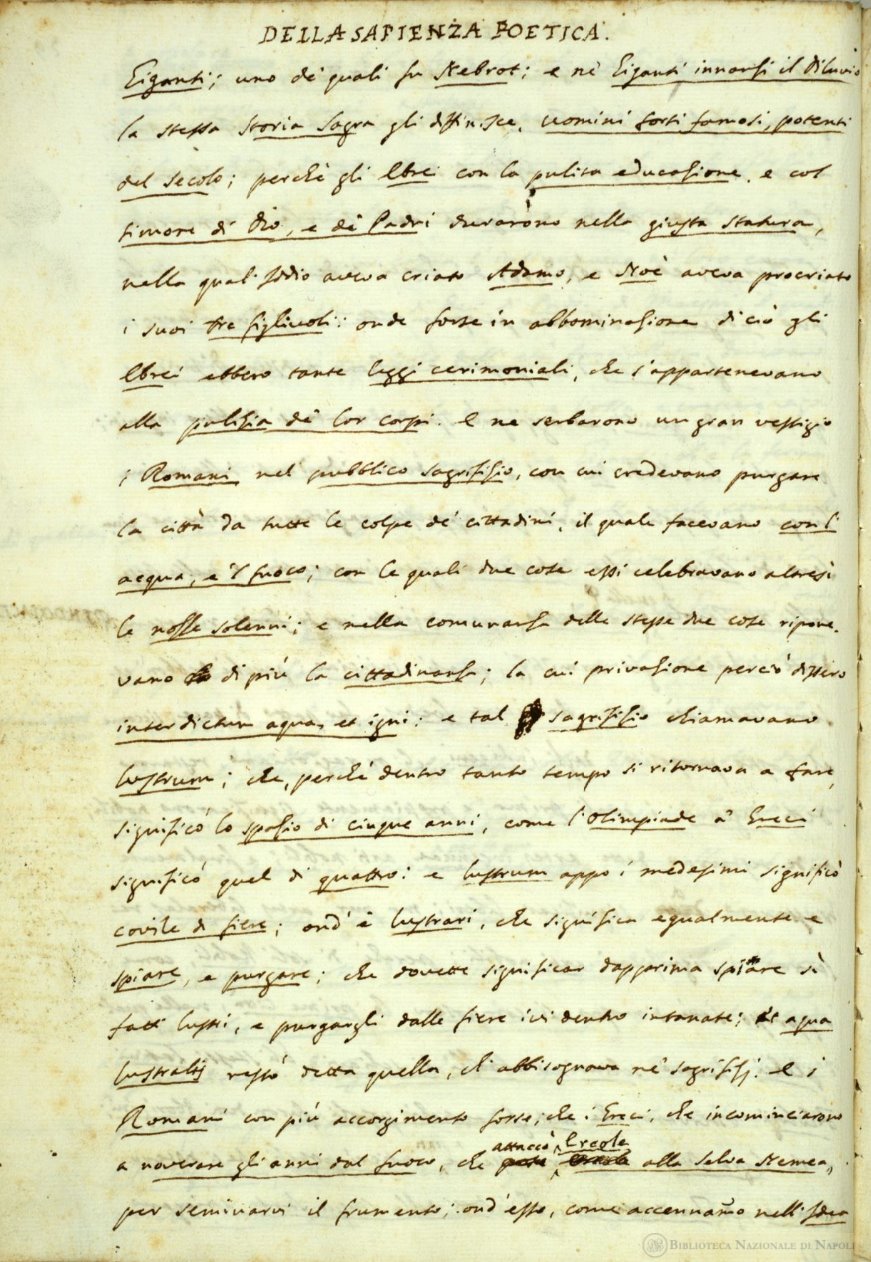 DELLA SAPIENZA POETICA.
Giganti; uno de' quali fu Nebrot; e ne' Giganti innanzi il Diluvio
la stessa Storia Sagra gli diffinisce, uomini forti famosi, potenti
del Secolo; perchè gli Ebrei con la pulita educazione, e col
timore di Dio, e de' Padri durarono nella giusta statura,
nella qual' Iddio aveva criato Adamo, e Noè aveva procriato
i suoi tre figliuoli: onde forse in abbominazione di ciò gli
Ebrei ebbero tante leggi cerimoniali, che s'appartenevano
alla pulizia de' lor corpi. E ne serbarono un gran vestigio
i Romani nel pubblico sagrifizio, con cui credevano purgare
la città da tutte le colpe de' cittadini, il quale facevano con l'
acqua, e 'l fuoco; con le quali due cose essi celebravano altresì
le nozze solenni; e nella comunanza delle stesse due cose ripone-
vano di più la cittadinanza; la cui privazione perciò dissero
interdictum aqua, et igni: e tal sagrifizio chiamavano
lustrum; che, perchè dentro tanto tempo si ritornava a fare,
significò lo spazio di cinque anni, come l'Olimpiade a' Greci
significò quel di quattro: e lustrum appo i medesimi significò
covile di fiere; ond' è lustrari, che significa egualmente e
spiare, e purgare; che dovette significar dapprima spiare sì
fatti lustri, e purgargli dalle fiere ivi dentro intanate; et aqua
lustralis restò detta quella, ch'abbisognava ne' sagrifizj. E i
Romani con più accorgimento forse, che i Greci, che incominciarono
attaccò Ercole
a noverare gli anni dal fuoco, che alla Selva Nemea,
per seminarvi il frumento; ond' esso, come accennammo nell' Idea
BIBLIOTECA NAZIONALE DI NAPOLI